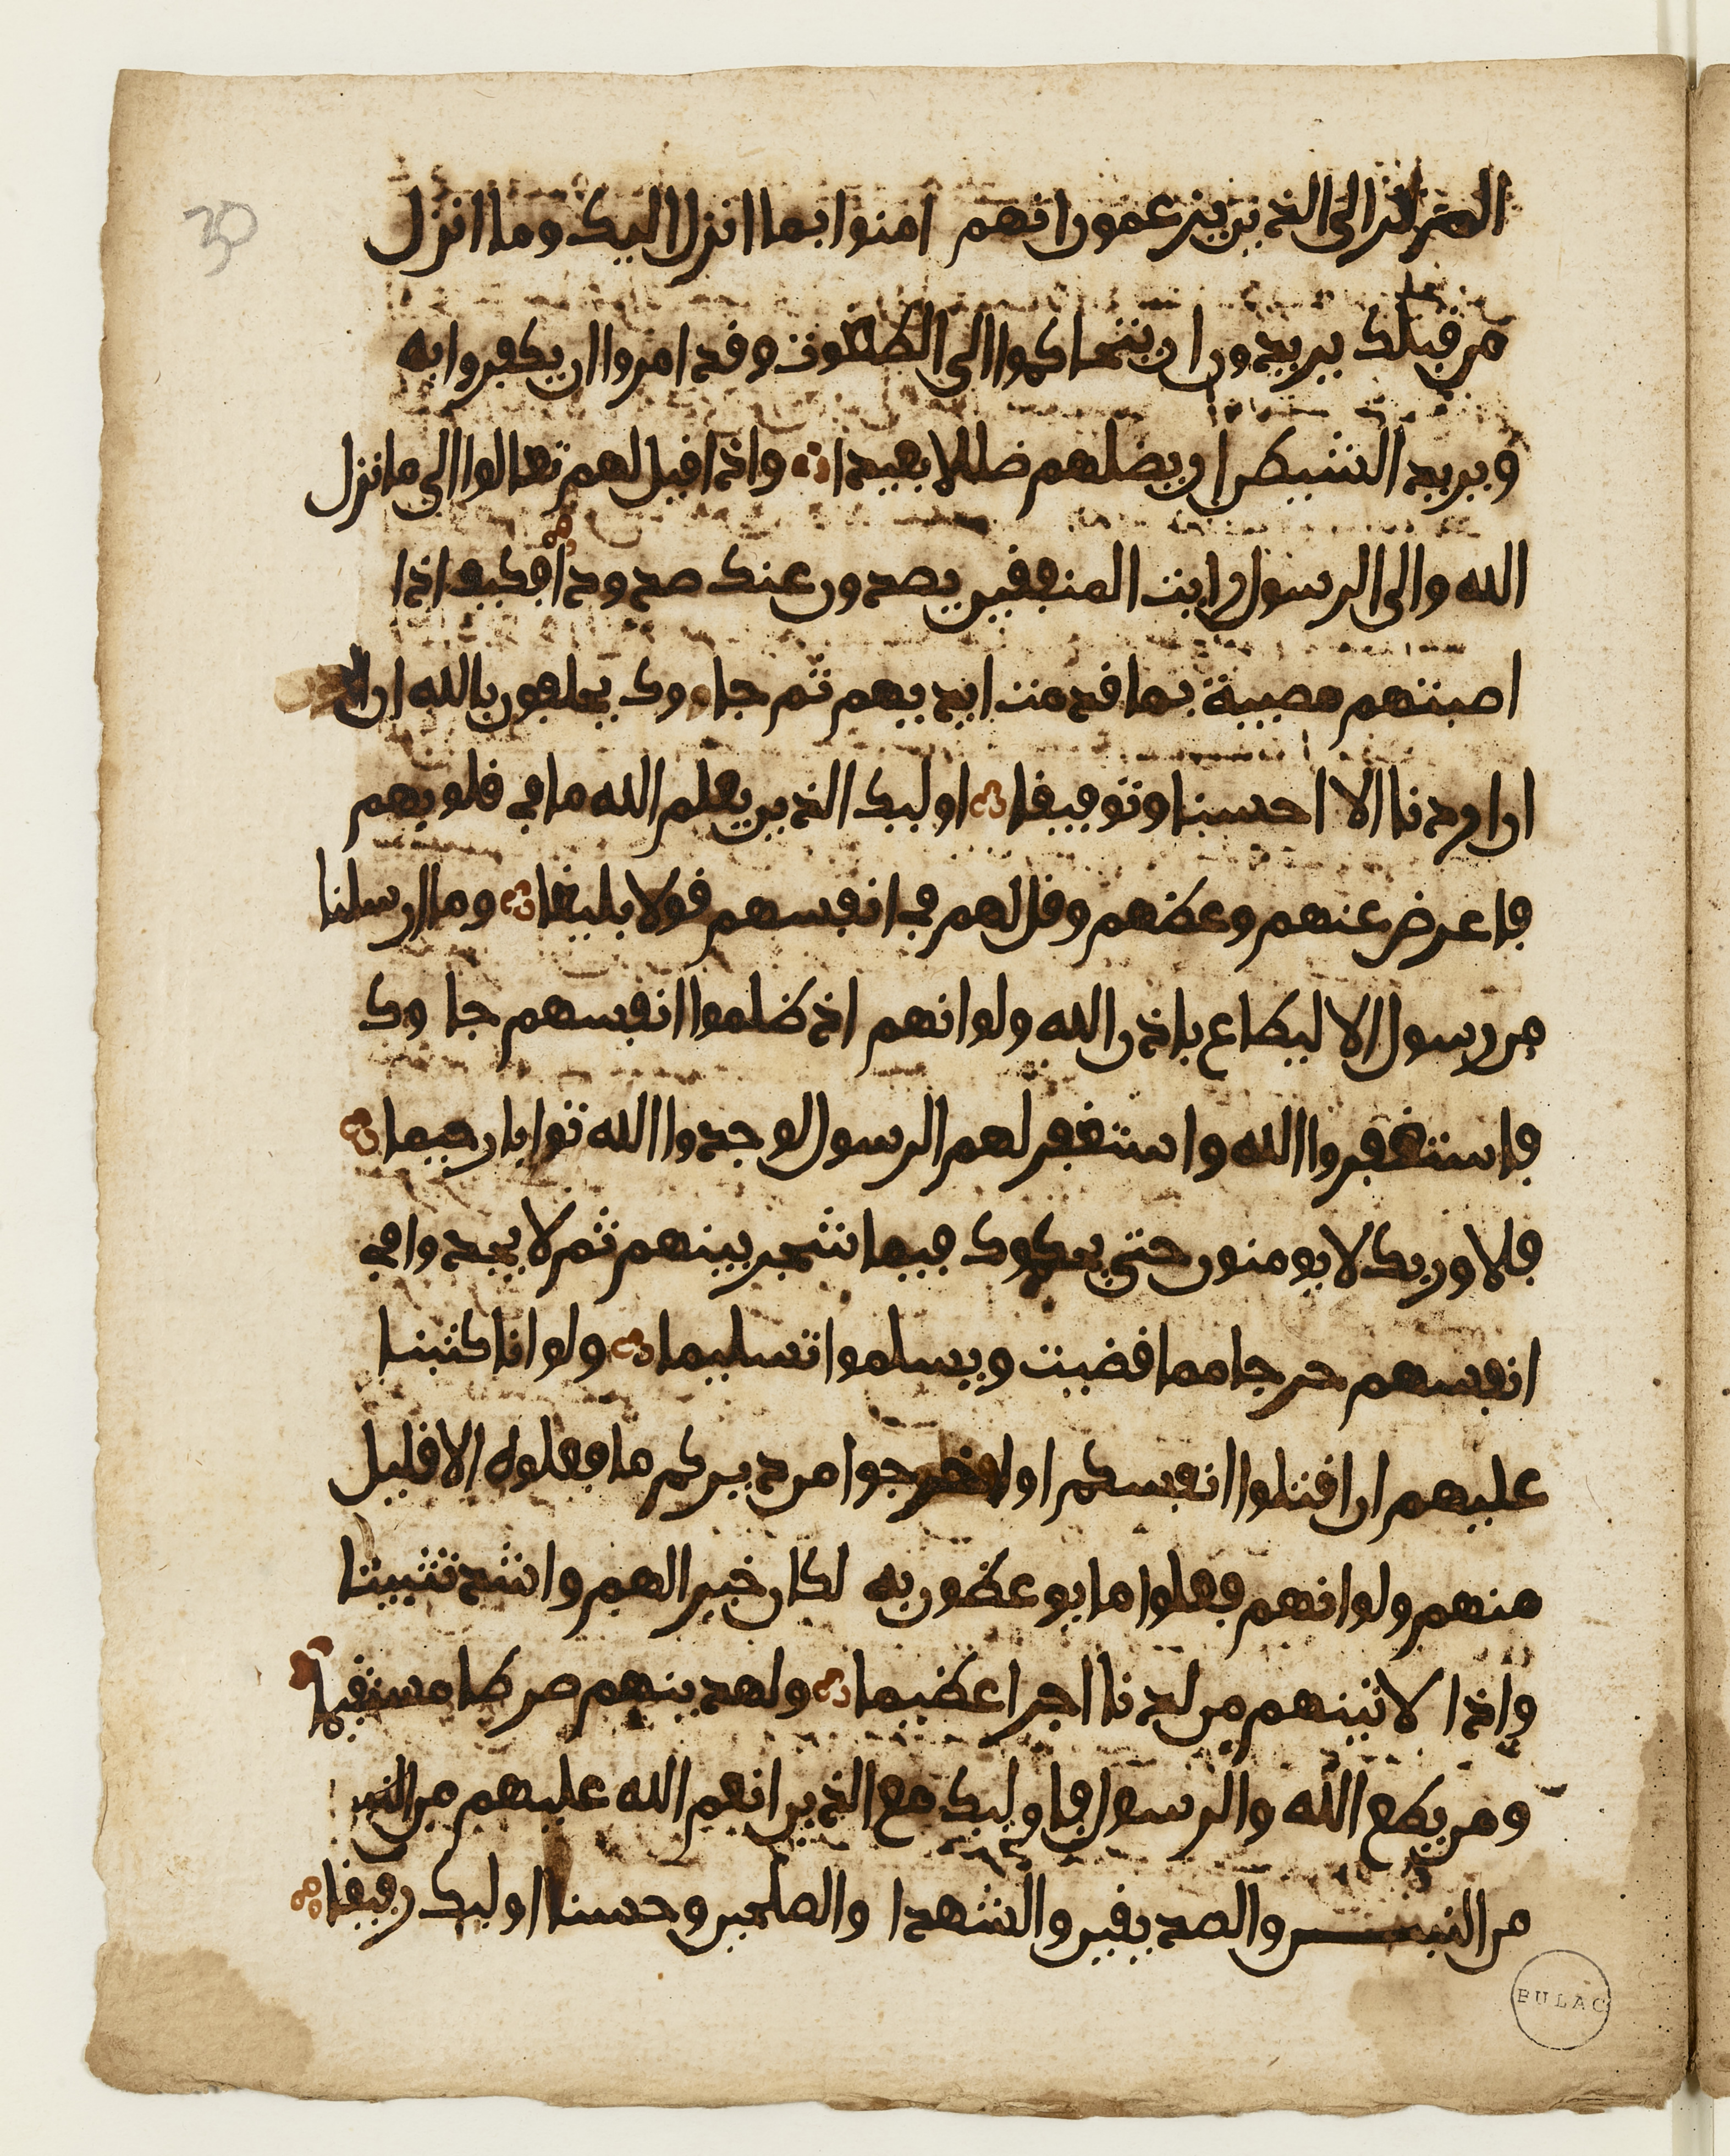 الم تر الى الذين يزعمون انهم امنوا بما انزل اليك وما انزل
من قبلك يريدون ان يتحاكموا الى الطغوت وقد امروا ان يكفروا به
ويريد الشيطن ان يضلهم ضللا بعيدا واذا قيل لهم تعالوا الى ما انزل
الله والى الرسول رايت المنفقين يصدون عنك صدودا فكيف اذا
اصبتهم مصيبة بما قدمت ايديهم ثم جاوك يحلفون بالله ان
ان اردنا الا احسنا وتوفيقا اوليك الذين يعلم الله ما في قلوبهم
فاعرض عنهم وعظهم وقل لهم في انفسهم قولا بليغا وما ارسلنا
من رسول الا ليطاع باذن الله ولو انهم اذ ظلموا انفسهم جاوك
فاستغفروا الله واستغفر لهم الرسول لوجدوا الله توابا رحيما
فلا وربك لا يومنون حتى يحكموك فيما شجر بينهم ثم لا يجدوا في
انفسهم حرجا مما قضيت ويسلموا تسليما ولو انا كتبنا
عليهم ان اقتلوا انفسكم او اخرجوا من ديركم ما فعلوه الا قليل
منهم ولو انهم فعلوا ما يوعظون به لكان خيرا لهم واشد تثبيتا
واذا لاتينهم من لدنا اجرا عظيما ولهدينهم صرطا مستقيما
ومن يطع الله والرسول فاوليك مع الذين انعم الله عليهم من
من النبين والصديقين والشهدا والصلحين وحسن اوليك رفيقا
BULAC